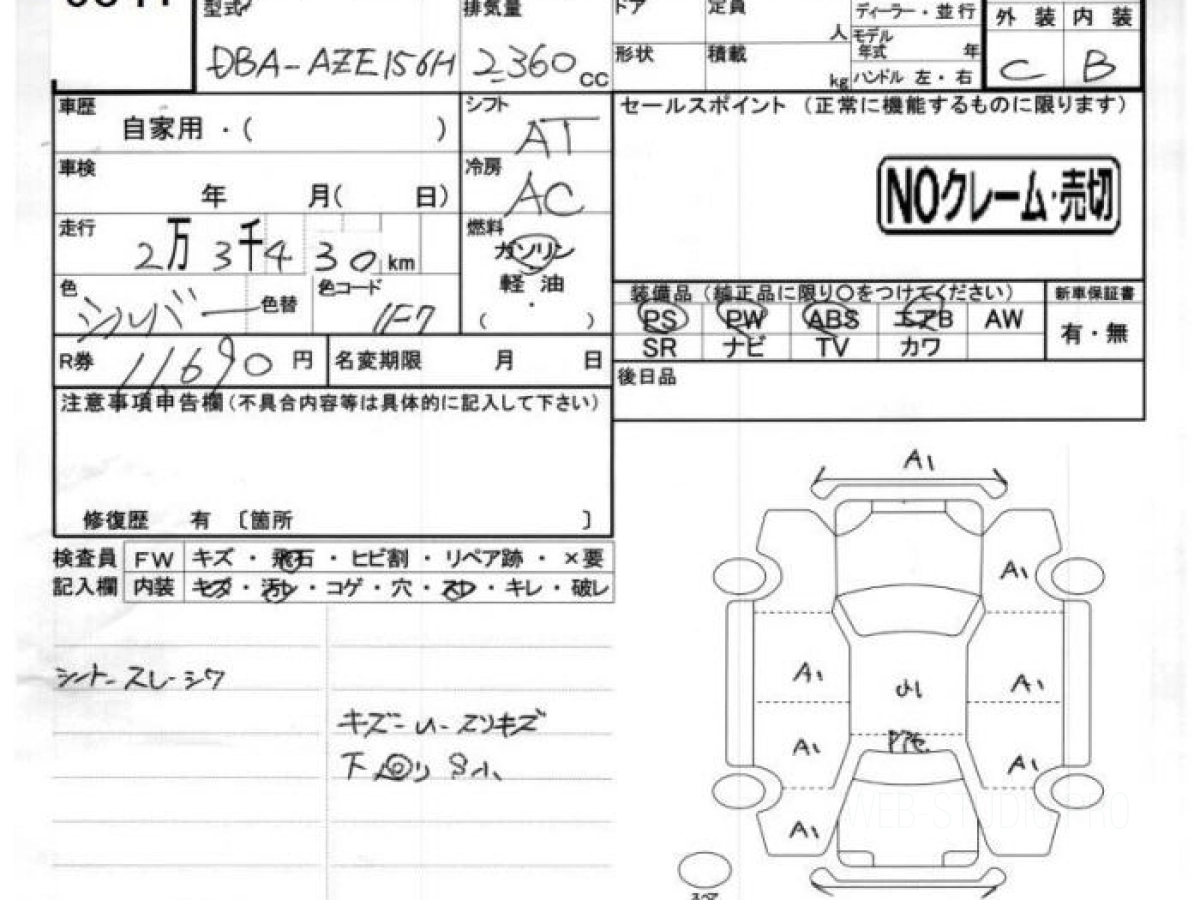 型式
DBA-AZE156H
排気量
2360 CC
ドア
定員
人
形状
積載
kg
ディーラー・並行
モデル
年式 年
ハンドル 左・右
外装 内装
C B
車歴
自家用・( )
シフト
AT
車検
年 月( 日)
冷房
AC
走行
2万3千430km
燃料
ガソリン
軽油
・
( )
色
シルバー
色替
色コード
1F7
R券
11,690円
名変期限 月 日
セールスポイント (正常に機能するものに限ります)
NOクレーム・売切
装備品 (純正品に限り○をつけてください)
新車保証書
PS PW ABS エアB AW
有・無
SR ナビ TV カワ
後日品
注意事項申告欄(不具合内容等は具体的に記入して下さい)
修復歴 有 〔箇所 〕
検査員
記入欄
FW キズ・飛石・ヒビ割・リペア跡・×要
内装 キズ・汚レ・コゲ・穴・スレ・キレ・破レ
シートースレーシワ
キズーU-スリキズ
下回りS小
A1
A1
A1
A1
A1
A1
A1
WEB-STUDIO PRO
スペア